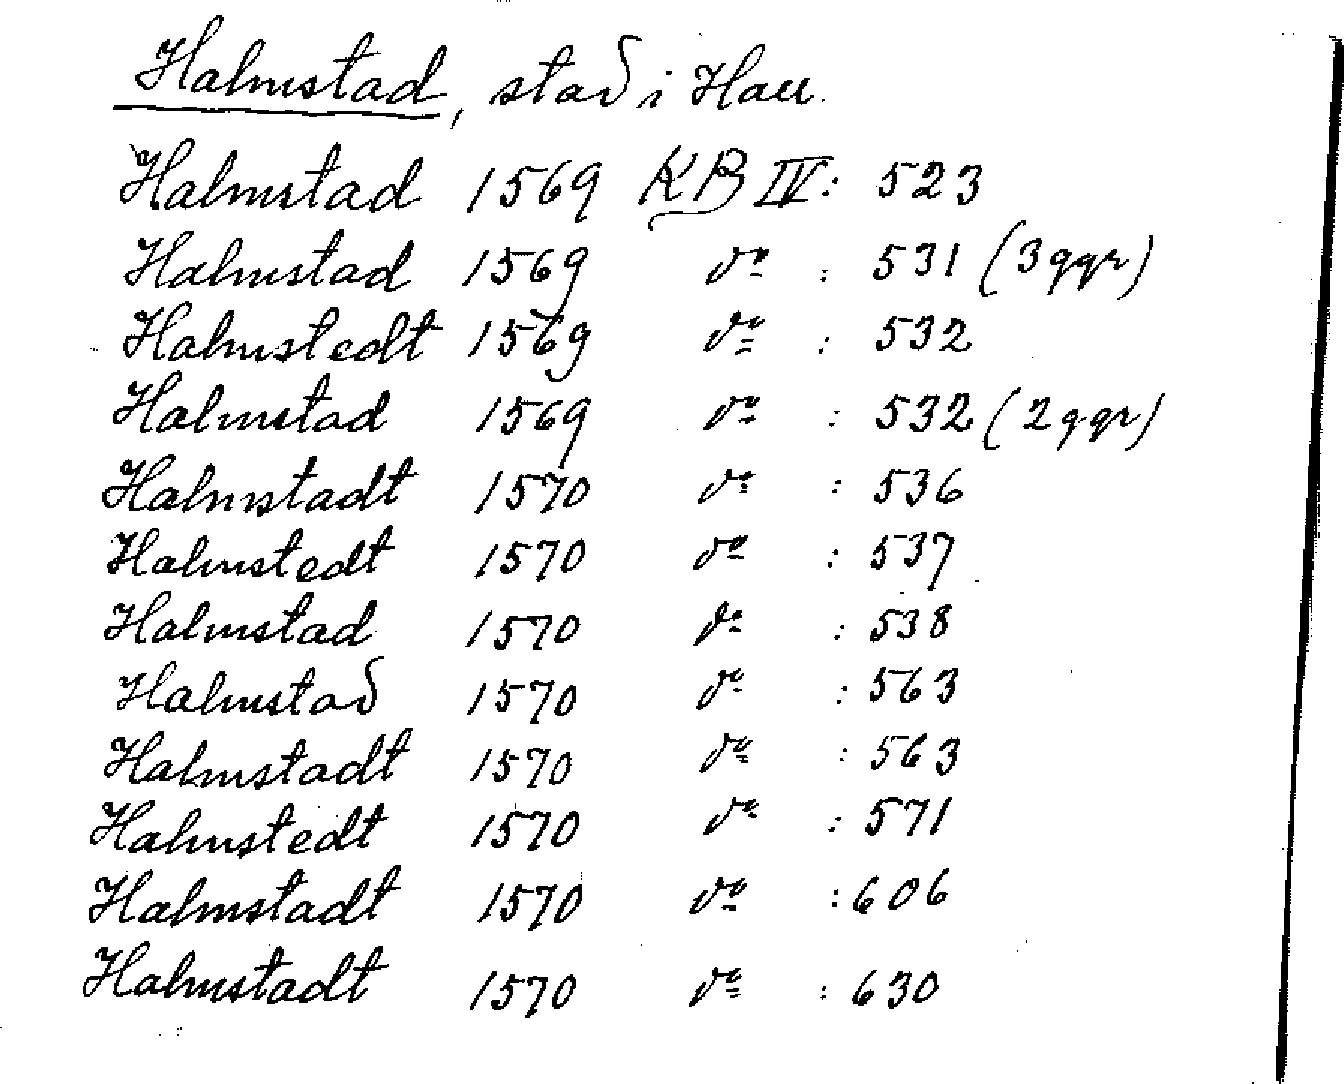 Halmstad, stad i Hall.
Halmstad 1569 KB IV: 523
Halmstad 1569 do : 531 (3 ggr)
Halmstedt 1569 do : 532
Halmstad 1569 do : 532 (2 ggr)
Halmstadt 1570 do : 536
Halmstedt 1570 do : 537
Halmstad 1570 do : 538
Halmstad 1570 do : 563
Halmstadt 1570 do : 563
Halmstedt 1570 do : 571
Halmstadt 1570 do : 606
Halmstadt 1570 do : 630